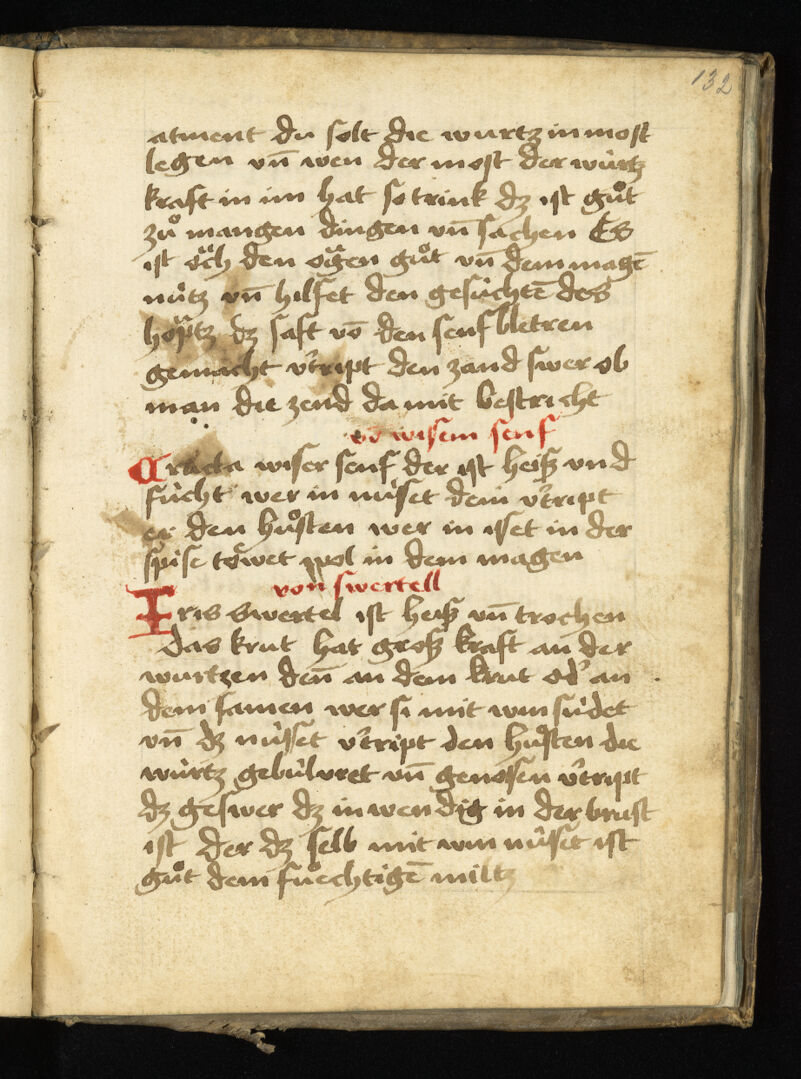 132
atment du solt die wurtz in most
legen vn̄ wen der most der wu̍rtz
kraft in im hat so trink dz ist gůt
zů mangen dingen vn̄ sachen Es
ist oͮch den oͮgen gůt vn̄ dem magē
nu̍tz vn̄ hilfet den gesu̍chtē des
hoͮptz dz saft vō den senf bletren
gemacht v̉tript den zand swer ob
man die zend da mit bestricht
vō wisem senf
Eructa wiser senf der ist heiß vnd
fu̍cht wer in nu̍set dem v̉tript
er den hůsten wer in isset in der
spise toͤwet wol in dem magen
von swertell
Iris Swertel ist heiß vn̄ trochen
das krut hat groß kraft an der
wurtzen den̄ an dem krut od̉ an
dem samen wer si mit win su̍det
vn̄ dz nu̍sset v̉tript den hůsten die
wu̍rtz gebu̍lvret vn̄ genossen v̉tript
dz geswer dz inwendig in der brust
ist der dz selb mit win nu̍set ist
gůt dem fu̍echtigē miltz